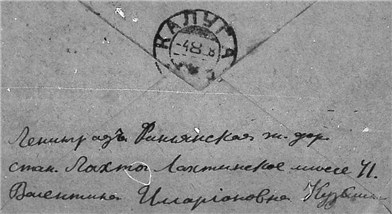 КАЛУГА
-4 8
Ленинградъ Финлянская ж. дор.
стан. Лахта Лахтинское шоссе
Валентина Иларіоновна